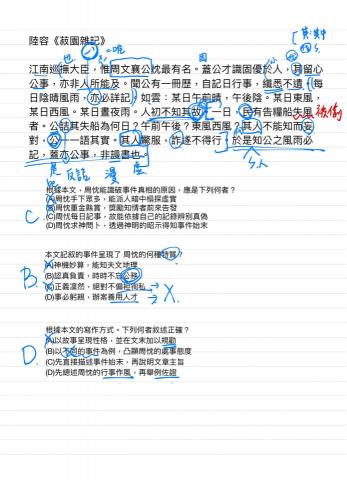 陸容《菽園雜記》
江南巡撫大臣，惟周文襄公忱最有名。蓋公才識固優於人，其留心
公事，亦非人所能及。聞公有一冊曆，自記日行事，纖悉不遺（每
日陰晴風雨，亦必詳記）如云：某日午前晴，午後陰。某日東風，
某日西風。某日晝夜雨。人初不知其故。一日，民有告糧船失風
者。公詰其失船為何日？午前午後？東風西風？其人不能知而妄
對，公一一語其實。其人驚服，詐遂不得行。於是知公之風雨必
記，蓋亦公事，非謾書也。
是 反話 漫
根據本文，周忱能識破事件真相的原因，應是下列何者？
(A)周忱手下眾多，能派人暗中楅探虛實
(B)周忱重金懸賞，獎勵知情者前來告發
C. (C)周忱每日記事，故能依據自己的記錄辨別真偽
(D)周忱求神問卜，透過神明的昭示得知事件始末
本文記敘的事件呈現了 周忱的何種特質？
(A)神機妙算，能知天文地理
B. (B)認真負責，時時不忘公務
(C)正義凜然，絕對不偏袒徇私→X.
(D)事必躬親，辦案善用人才→
根據本文的寫作方式。下列何者敘述正確？
(A)以故事呈現性格，並在文末加以規勸
(B)以不同的事件為例，凸顯周忱的處事態度
D. (C)先直接描述事件始末，再說明文章主旨
(D)先總述周忱的行事作風，再舉例佐證